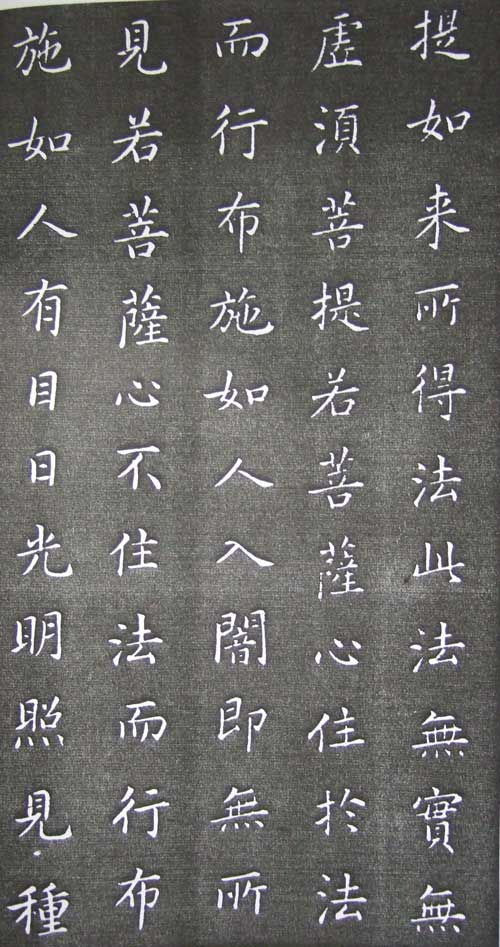 提如来所得法此法無實無
虛湏菩提若菩薩心住於法
而行布施如人入闇即無所
見若菩薩心不住法而行布
施如人有目日光明照見種